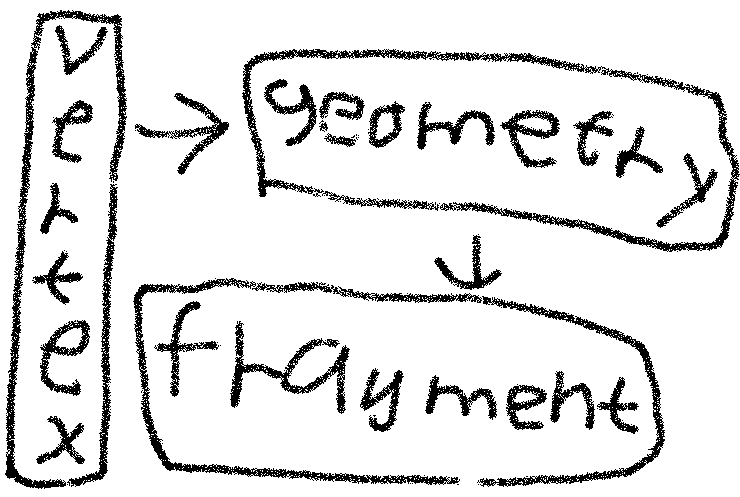 vertex
geometry
fragment